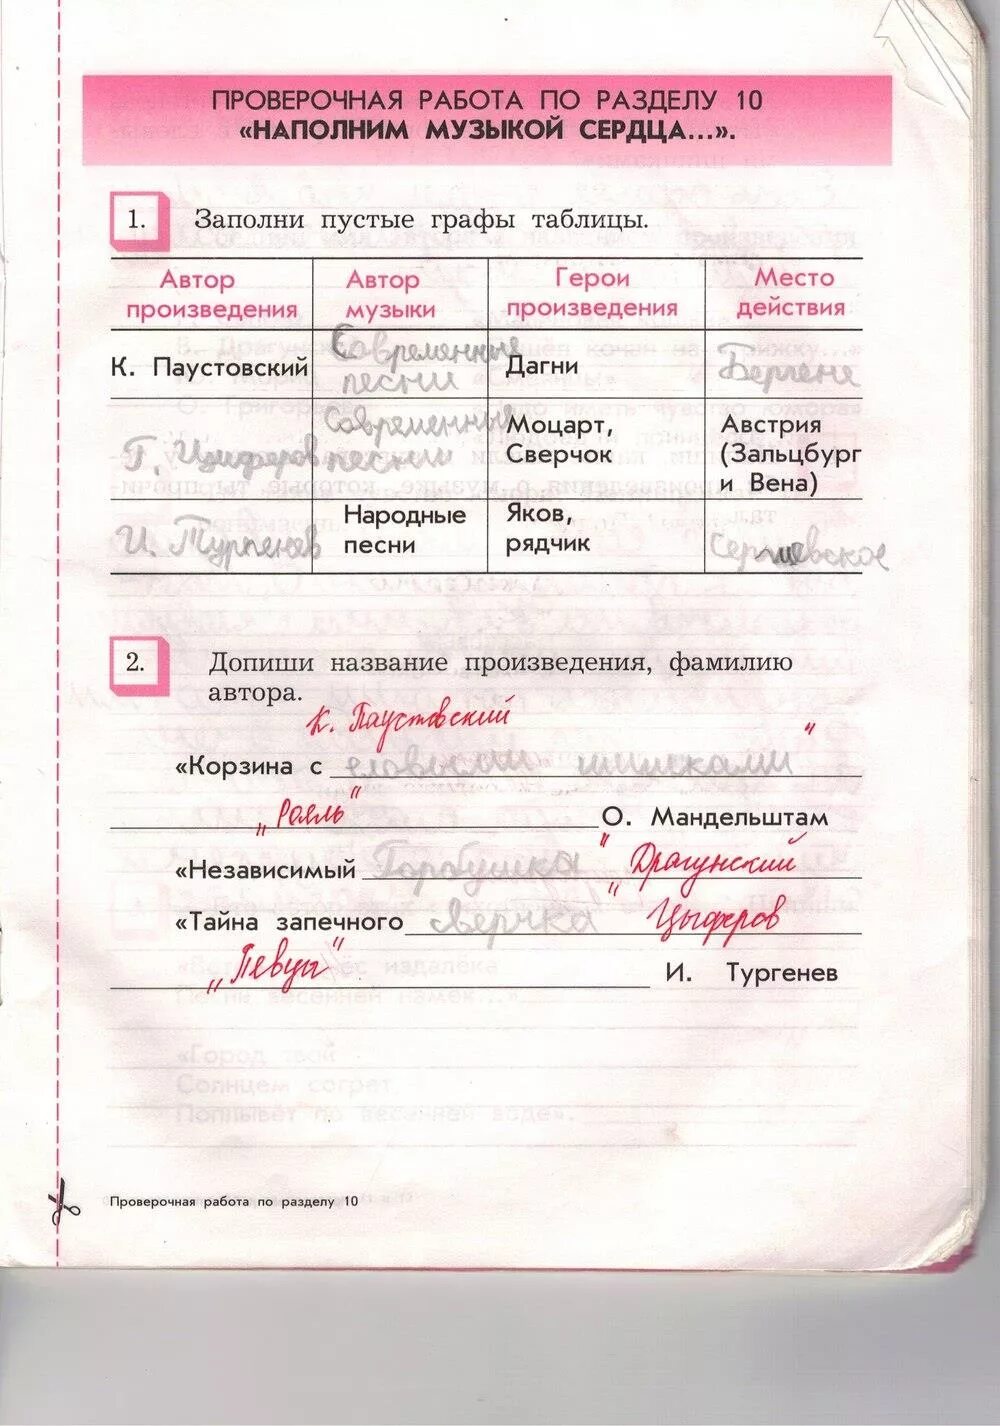 ПРОВЕРОЧНАЯ РАБОТА ПО РАЗДЕЛУ 10
«НАПОЛНИМ МУЗЫКОЙ СЕРДЦА...».
1. Заполни пустые графы таблицы.
Автор произведения Автор музыки Герои произведения Место действия
К. Паустовский Современные песни Дагни Бергене
Г. Цыферов Современные песни Моцарт, Сверчок Австрия (Зальцбург и Вена)
И. Тургенев Народные песни Яков, рядчик Сергиевское
2. Допиши название произведения, фамилию
автора.
К. Паустовский "
«Корзина с еловыми шишками
„Рояль" О. Мандельштам
«Независимый Горбушка" Драгунский
«Тайна запечного сверчка" Цыферов
„Певцы" И. Тургенев
Проверочная работа по разделу 10